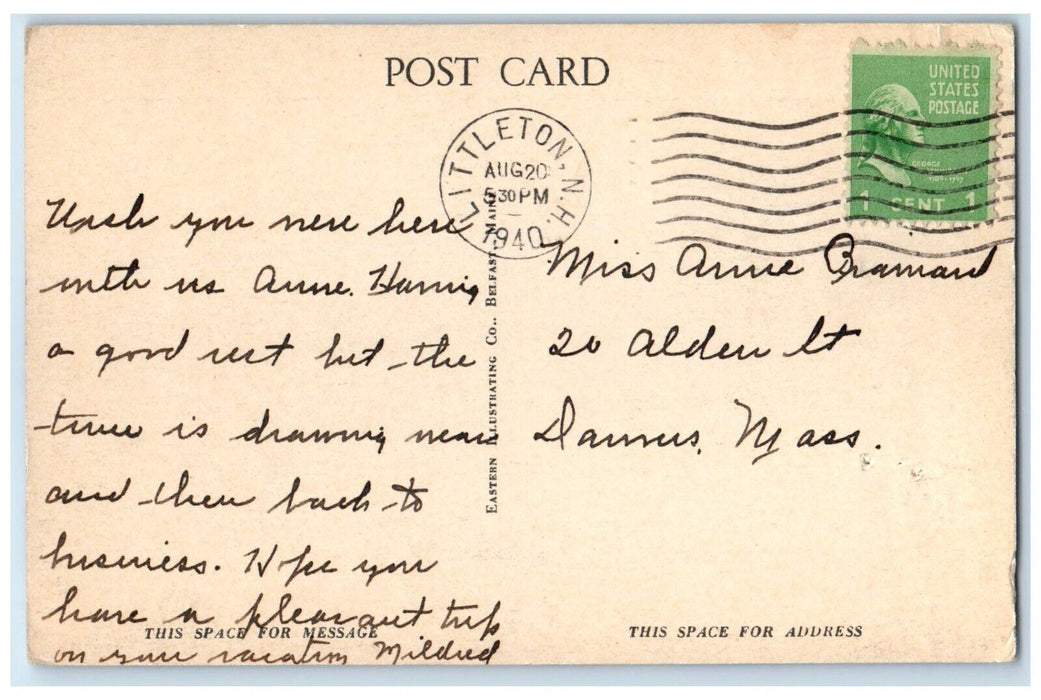 POST CARD
UNITED
STATES
POSTAGE
GEORGE
1 CENT 1
LITTLETON, N.H.
AUG 20
5 30 PM
1940
Wish you were here
with us Anne. Having
a good rest but the
time is drawing near
and then back to
business. Hope you
have a pleasant trip
on your vacation Mildred
EASTERN ILLUSTRATING CO., BELFAST, MAINE
Miss Anne
20 Alden St
Danvers, Mass.
THIS SPACE FOR MESSAGE
THIS SPACE FOR ADDRESS